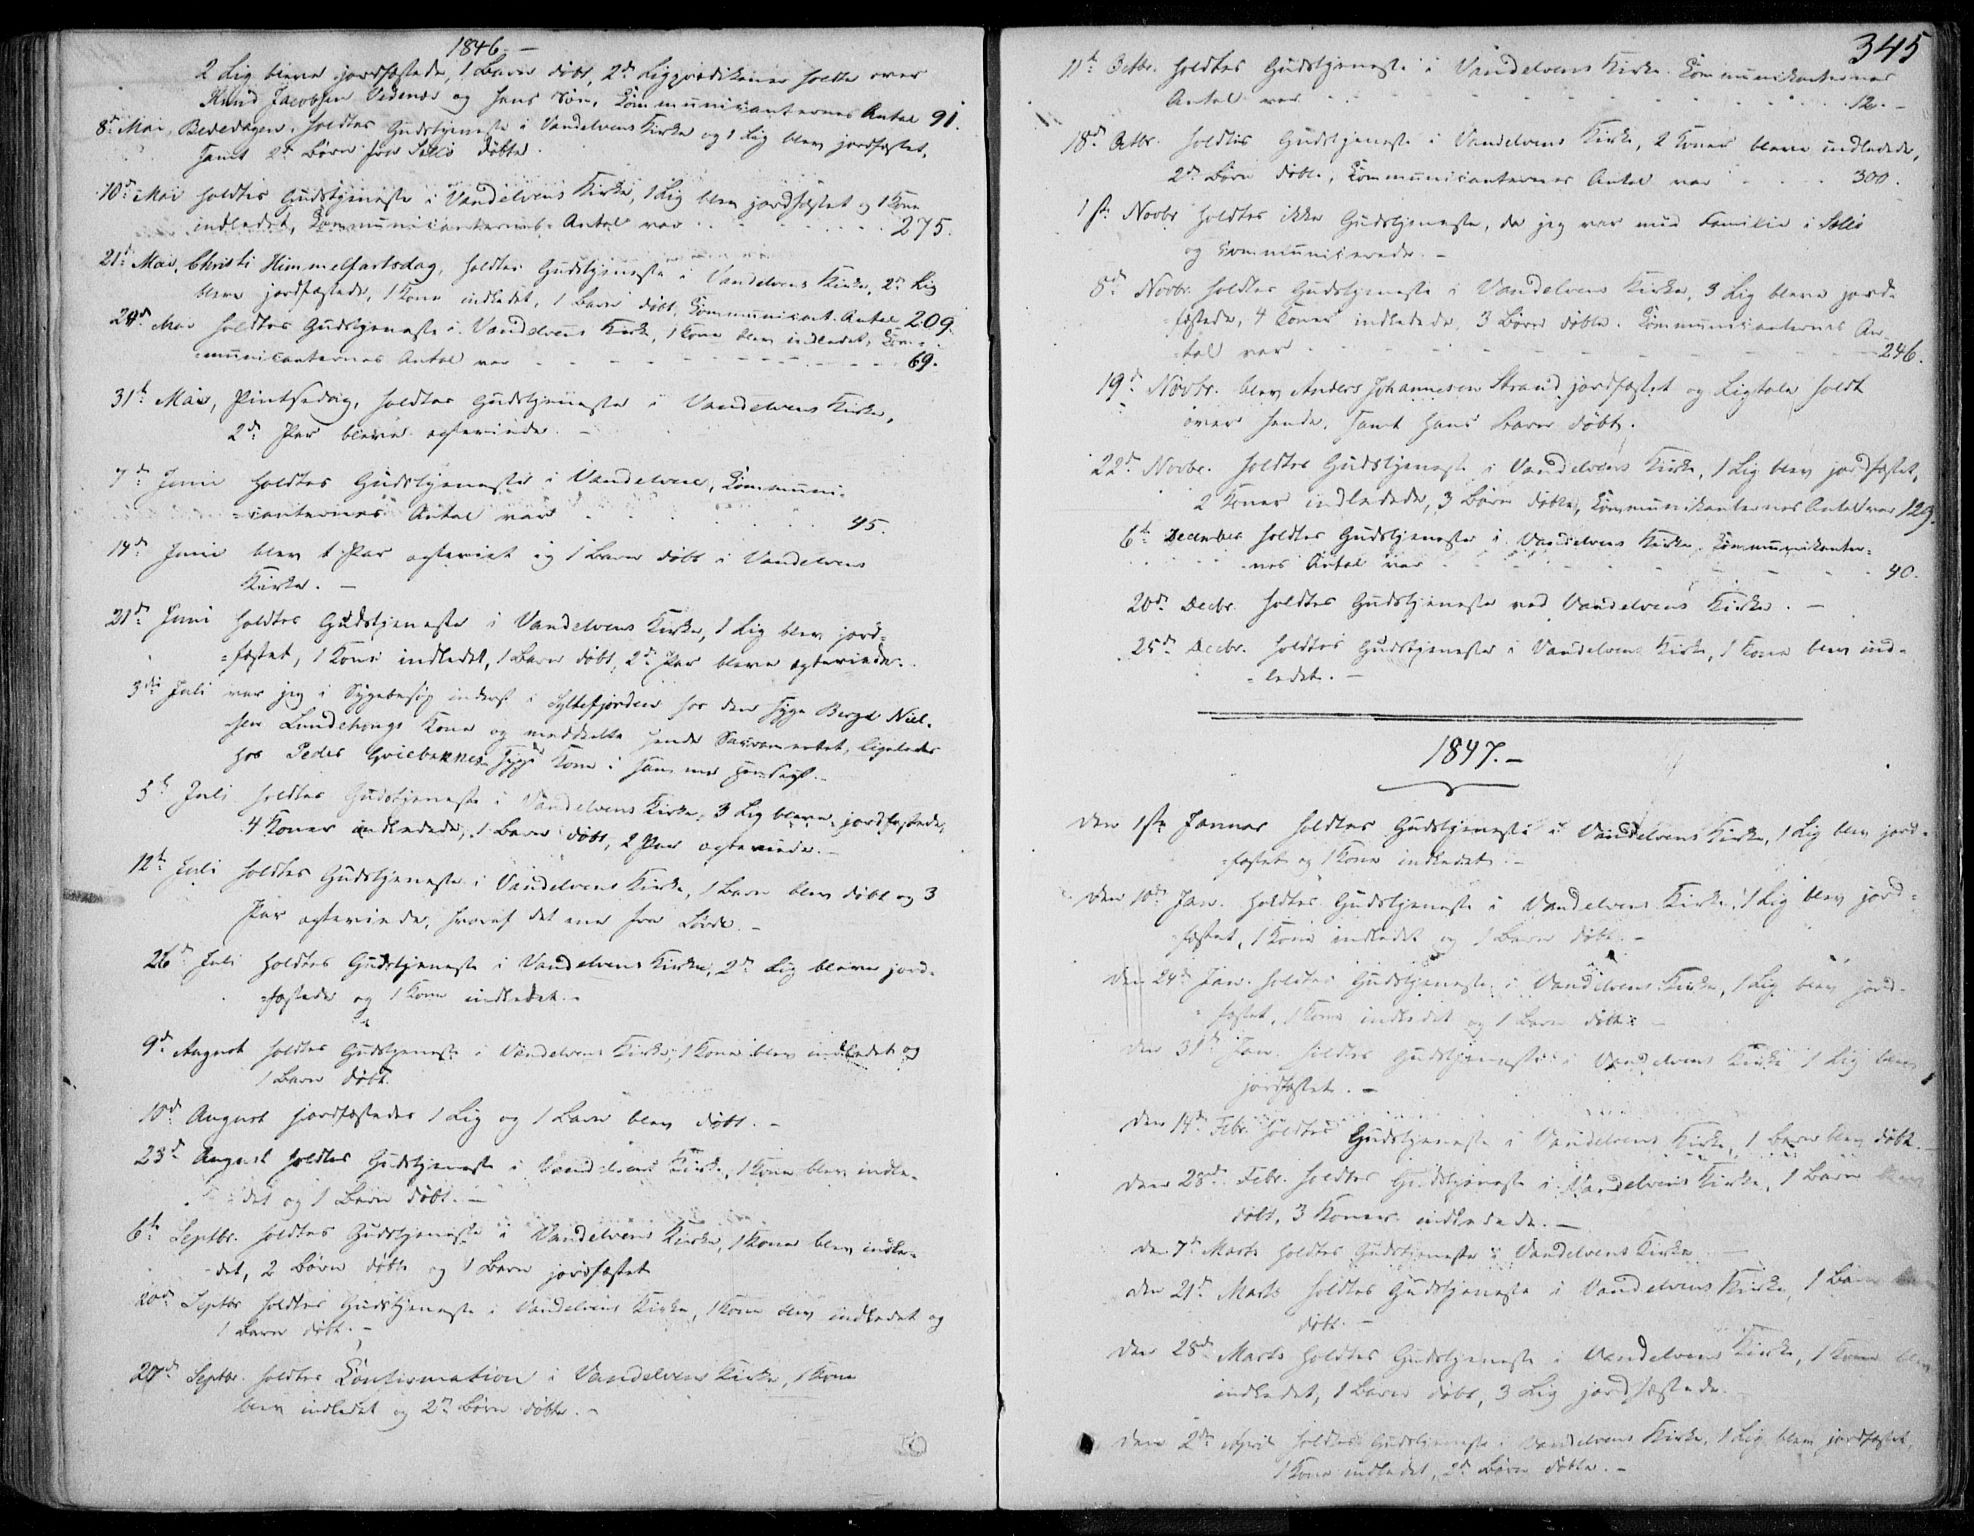 1846.–
2 Lig bleve jordfæstede, 1 Barn døbt, 2de Ligprædikener holdte over
Knud Jacobsen Vedenæs og hans Søn, Communicanternes Antal 91.
8de Mai, Bededagen, holdtes Gudstjeneste i Vandelvens Kirke og 1 Lig blev jordfæstet,
samt 2de Børn døbte.
10de Mai holdtes Gudstjeneste i Vandelvens Kirke, 1 Lig blev jordfæstet og 1 Kone
indledet, Communicanternes Antal var . . . 275.
21de Mai, Christi Himmelfartsdag, holdtes Gudstjeneste i Vandelvens Kirke, 2de Lig
bleve jordfæstede, 1 Kone indledet, 1 Barn døbt, Communicant. Antal 209.
24de Mai holdtes Gudstjeneste i Vandelvens Kirke, 1 Kone blev indledet, Com=
=municanternes Antal var – – – 69.
31te Mai, Pintsedag, holdtes Gudstjeneste i Vandelvens Kirke,
2de Par bleve egteviede. –
7de Juni holdtes Gudstjeneste i Vandelven, Communi=
=canternes Antal var . . . 45.
14de Juni blev 1 Par egteviet og 1 Barn døbt i Vandelvens
Kirke. –
21de Juni holdtes Gudstjeneste i Vandelvens Kirke, 1 Lig blev jord=
=fæstet, 1 Kone indledet, 1 Barn døbt, 2de Par bleve egteviede.
3die Juli var jeg i Sygebesøg inderst i Syltefjorden hos den syge Berge Niel=
=sen Lundehougs Kone og meddeelte hende Sacramentet, ligeledes
hos Peder syge Kone i samme Henseigt. –
5te Juli holdtes Gudstjeneste i Vandelvens Kirke, 3 Lig bleve jordfæstede,
4 Koner indledede, 1 Barn døbt, 2 Par egteviede. –
12te Juli holdtes Gudstjeneste i Vandelvens Kirke, 1 Barn blev døbt og 3
Par egteviede, hvoraf det ene fra –
26de Juli holdtes Gudstjeneste i Vandelvens Kirke, 2de Lig bleve jord=
=fæstede og 1 Kone indledet. –
9de August holdtes Gudstjeneste i Vandelvens Kirke, 1 Kone blev indledet og
1 Barn døbt.
10de August jordfæstedes 1 Lig og 1 Barn blev døbt. –
23de August holdtes Gudstjeneste i Vandelvens Kirke, 1 Kone blev indle=
det og 1 Barn døbt. –
6te Septbr. holdtes Gudstjeneste i Vandelvens Kirke, 1 Kone blev indle=
=det, 2 Børn døbte og 1 Barn jordfæstet
20de Septbr holdtes Gudstjeneste i Vandelvens Kirke, 1 Kone blev indledet og
1 Barn døbt. –
27de Septbr. holdtes Confirmation i Vandelvens Kirke, 1 Kone
blev indledet og 2de Børn døbte. –
345
11te Octbr. holdtes Gudstjeneste i Vandelvens Kirke. Communikanternes
Antal var . . . 12. –
18de Octbr. holdtes Gudstjeneste i Vandelvens Kirke, 2 Koner bleve indledede,
2de Børn døbte, Communicanternes Antal var – – 300.
1ste Novbr holdtes ikke Gudstjeneste, da jeg var med Familie i
og communicerede. –
8de Novbr. holdtes Gudstjeneste i Vandelvens Kirke, 3 Lig bleve jord=
=fæstede, 4 Koner indledede, 3 Børn døbte. Communicanternes An=
=tal var – – – 246.
19de Novbr. blev Anders Johannesen Strand jordfæstet og Ligtale holdt
over hende, samt hans Barn døbt.
22de Novbr. holdtes Gudstjeneste i Vandelvens Kirke, 1 Lig blev jordfæstet,
2 Koner indledede, 3 Børn døbte, Communikanternes Antal var 123.
6te December holdtes Gudstjeneste i Vandelvens Kirke, Communikanter=
nes Antal var – – – 40.
20de Decbr. holdtes Gudstjeneste ved Vandelvens Kirke. –
25de Decbr. holdtes Gudstjeneste i Vandelvens Kirke, 1 Kone blev ind=
=ledet. –
1847. –
Den 1ste Januar holdtes Gudstjeneste i Vandelvens Kirke, 1 Lig blev jord=
=fæstet og 1 Kone indledet. –
Den 10de Jan. holdtes Gudstjeneste i Vandelvens Kirke, 1 Lig blev jord=
=fæstet, 1 Kone indledet og 1 Barn døbt. –
Den 24de Jan. holdtes Gudstjeneste i Vandelvens Kirke, 1 Lig blev jord=
=fæstet, 1 Kone indledet og 1 Barn døbt. –
Den 31te Jan. holdtes Gudstjeneste i Vandelvens Kirke 1 Lig blev
jordfæstet. –
Den 14de Febr. holdtes Gudstjeneste i Vandelvens Kirke, 1 Barn blev døbt.
Den 28de Febr. holdtes Gudstjeneste i Vandelvens Kirke, 1 Barn blev
døbt, 3 Koner indledede. –
Den 7de Marts holdtes Gudstjeneste i Vandelvens Kirke –
Den 21de Marts holdtes Gudstjeneste i Vandelvens Kirke, 1 Barn blev
døbt. –
Den 28de Marts holdtes Gudstjeneste i Vandelvens Kirke, 1 Kone blev
indledet, 1 Barn døbt, 3 Lig jordfæstede.
Den 2den April holdtes Gudstjeneste i Vandelvens Kirke, 1 Lig blev jordfæstet,
1 Kone indledet, 2de Børn døbte. –